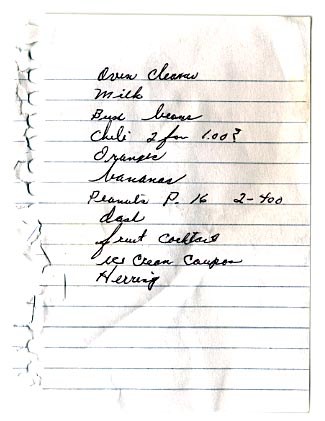 Oven cleaner
Milk
Bush beans
Chili 2 for 1.00?
Oranges
bananas
Peanuts P. 16 2-400
fruit cocktail
ice cream coupon
Herring